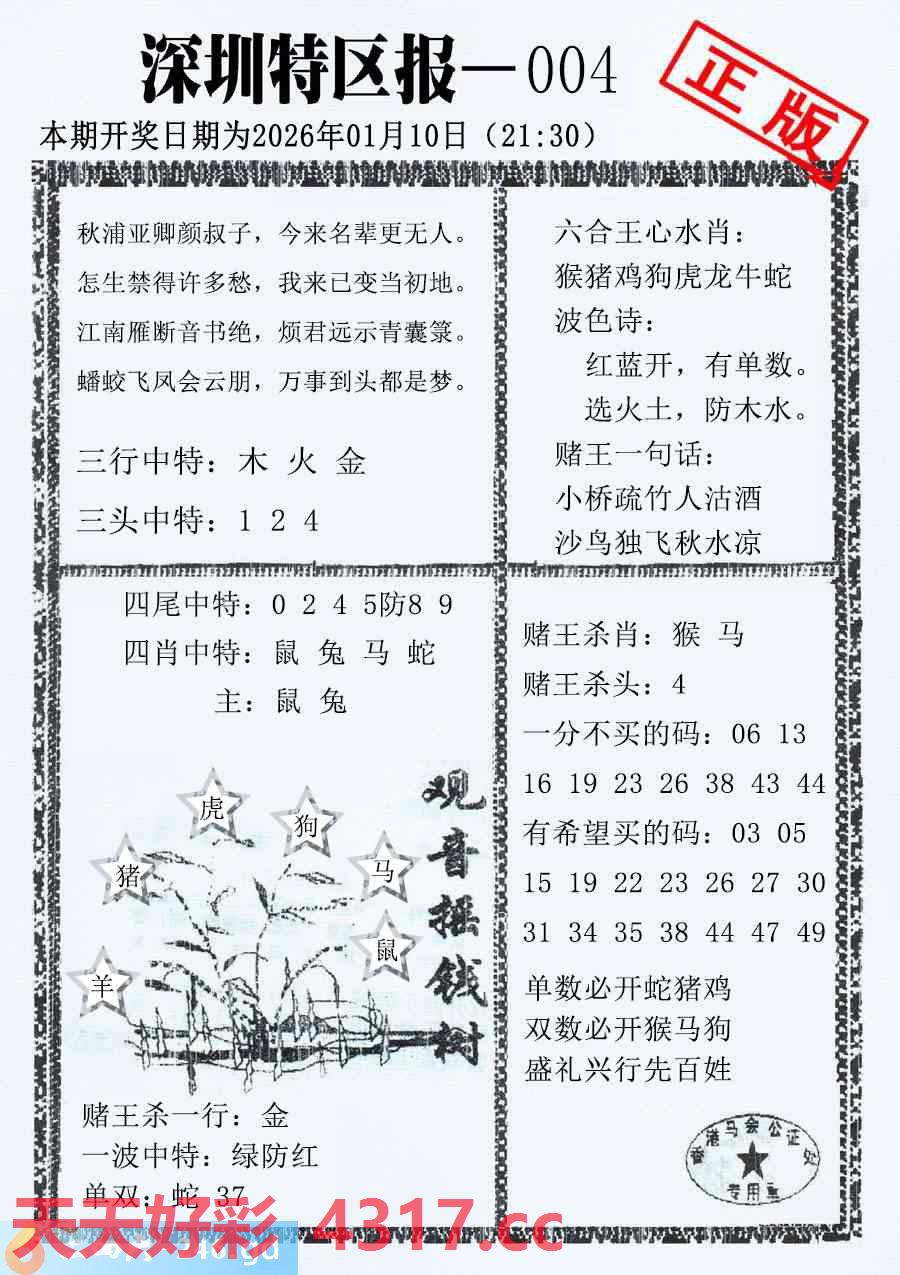 深圳特区报－004
正版
本期开奖日期为2026年01月10日（21:30）
秋浦亚卿颜叔子，今来名辈更无人。
怎生禁得许多愁，我来已变当初地。
江南雁断音书绝，烦君远示青囊箓。
蟠蛟飞凤会云朋，万事到头都是梦。
三行中特：木 火 金
三头中特：1 2 4
六合王心水肖：
猴猪鸡狗虎龙牛蛇
波色诗：
红蓝开，有单数。
选火土，防木水。
赌王一句话：
小桥疏竹人沽酒
沙鸟独飞秋水凉
四尾中特：0 2 4 5防8 9
四肖中特：鼠 兔 马 蛇
主：鼠 兔
观音摇钱树
虎
狗
猪
马
鼠
羊
赌王杀一行：金
一波中特：绿防红
单双：蛇 37
赌王杀肖：猴 马
赌王杀头：4
一分不买的码：06 13
16 19 23 26 38 43 44
有希望买的码：03 05
15 19 22 23 26 27 30
31 34 35 38 44 47 49
单数必开蛇猪鸡
双数必开猴马狗
盛礼兴行先百姓
香港马会公证处
专用章
天天好彩 4317.cc